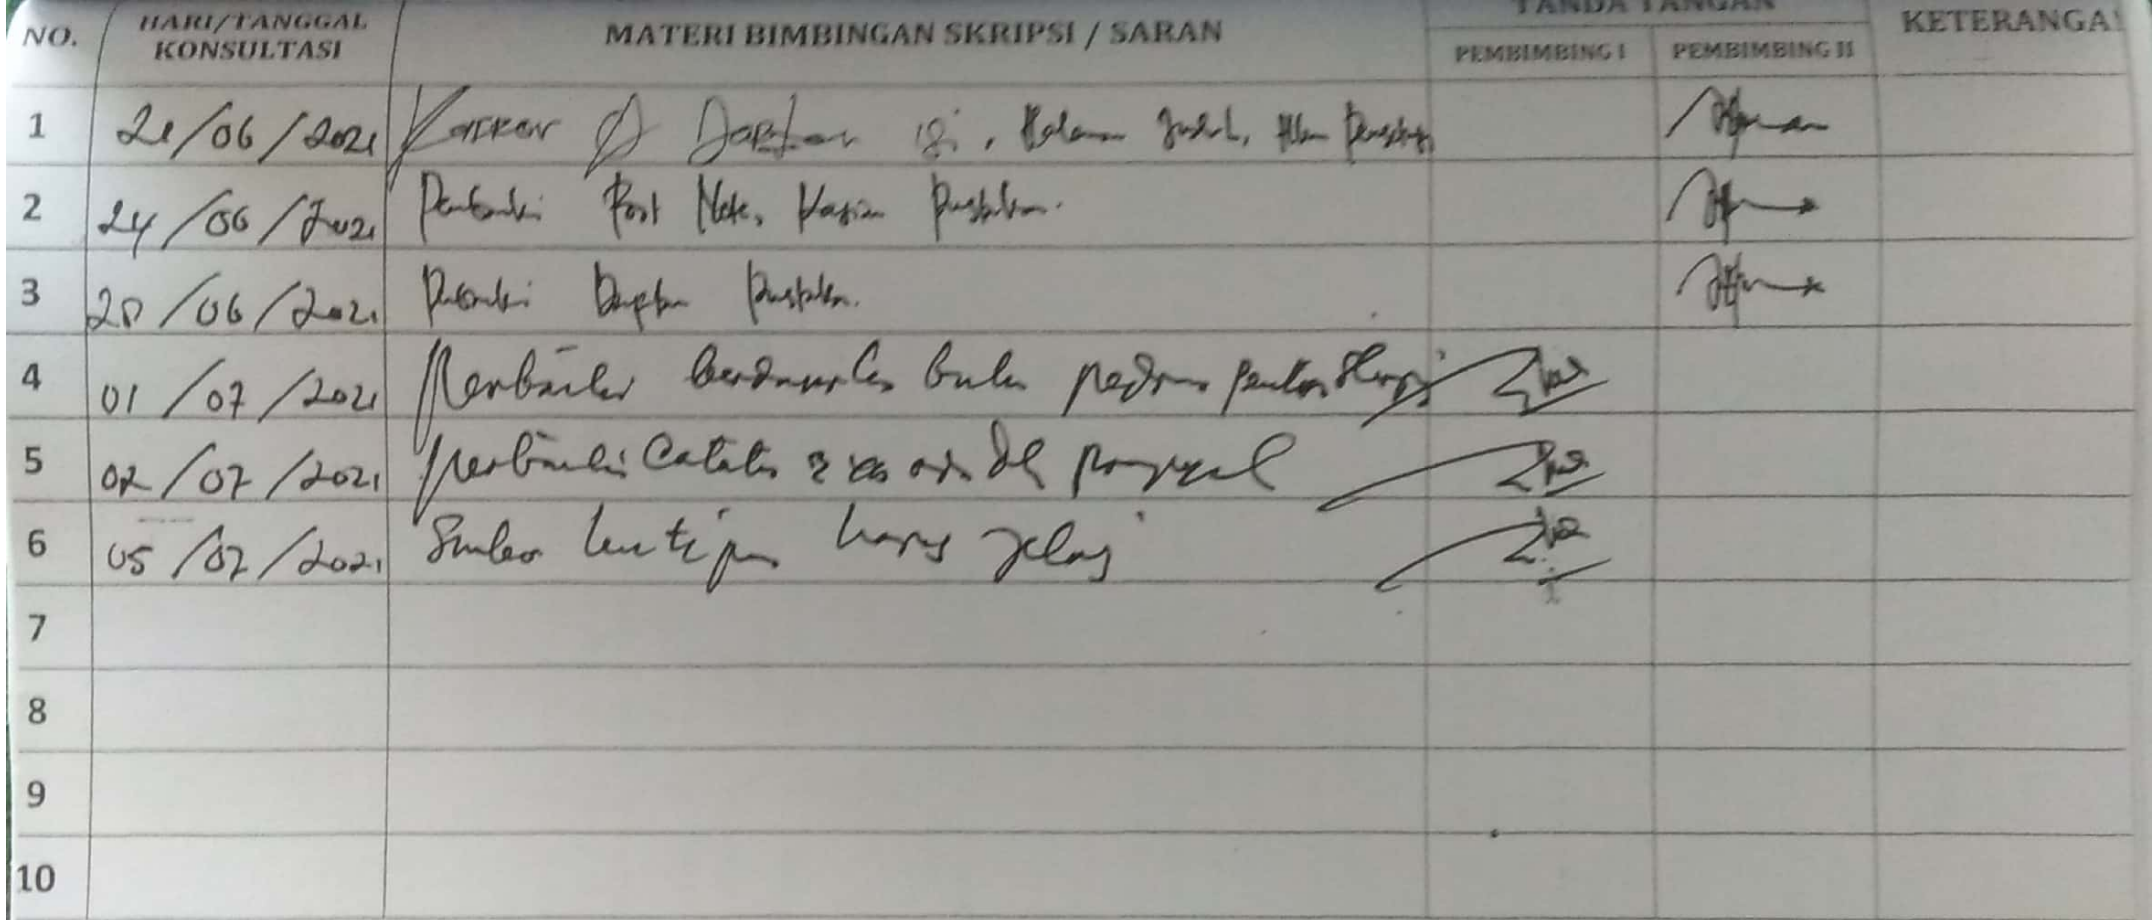 NO. HARI/TANGGAL KONSULTASI MATERI BIMBINGAN SKRIPSI / SARAN TANDA TANGAN KETERANGA
PEMBIMBING I PEMBIMBING II
1 21/06/2021 Daftar isi, Halaman Judul,
2 24/06/2021 Perbaiki Foot Note, Kajian Pustaka.
3 28/06/2021 Perbaiki Daftar Pustaka.
4 01/07/2021 Perbaiki berdasarkan buku pedoman
5 02/07/2021 perbaiki Catatan proposal
6 05/07/2021 Sumber kutipan harus jelas
7
8
9
10